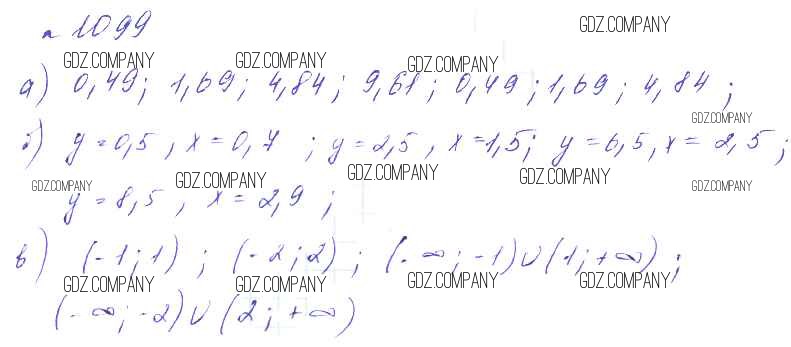 № 1099
GDZ.COMPANY
GDZ.COMPANY GDZ.COMPANY GDZ.COMPANY
а) 0,49; 1,69; 4,84; 9,61; 0,49; 1,69; 4,84;
GDZ.COMPANY
б) y=0,5, x=0,7; y=2,5, x=1,5; y=6,5, x=2,5;
GDZ.COMPANY GDZ.COMPANY GDZ.COMPANY GDZ.COMPANY GDZ.COMPANY
y=8,5, x=2,9;
в) (-1;1); (-2;2); (-∞;-1)∪(1;+∞);
GDZ.COMPANY GDZ.COMPANY GDZ.COMPANY GDZ.COMPANY
(-∞;-2)∪(2;+∞)